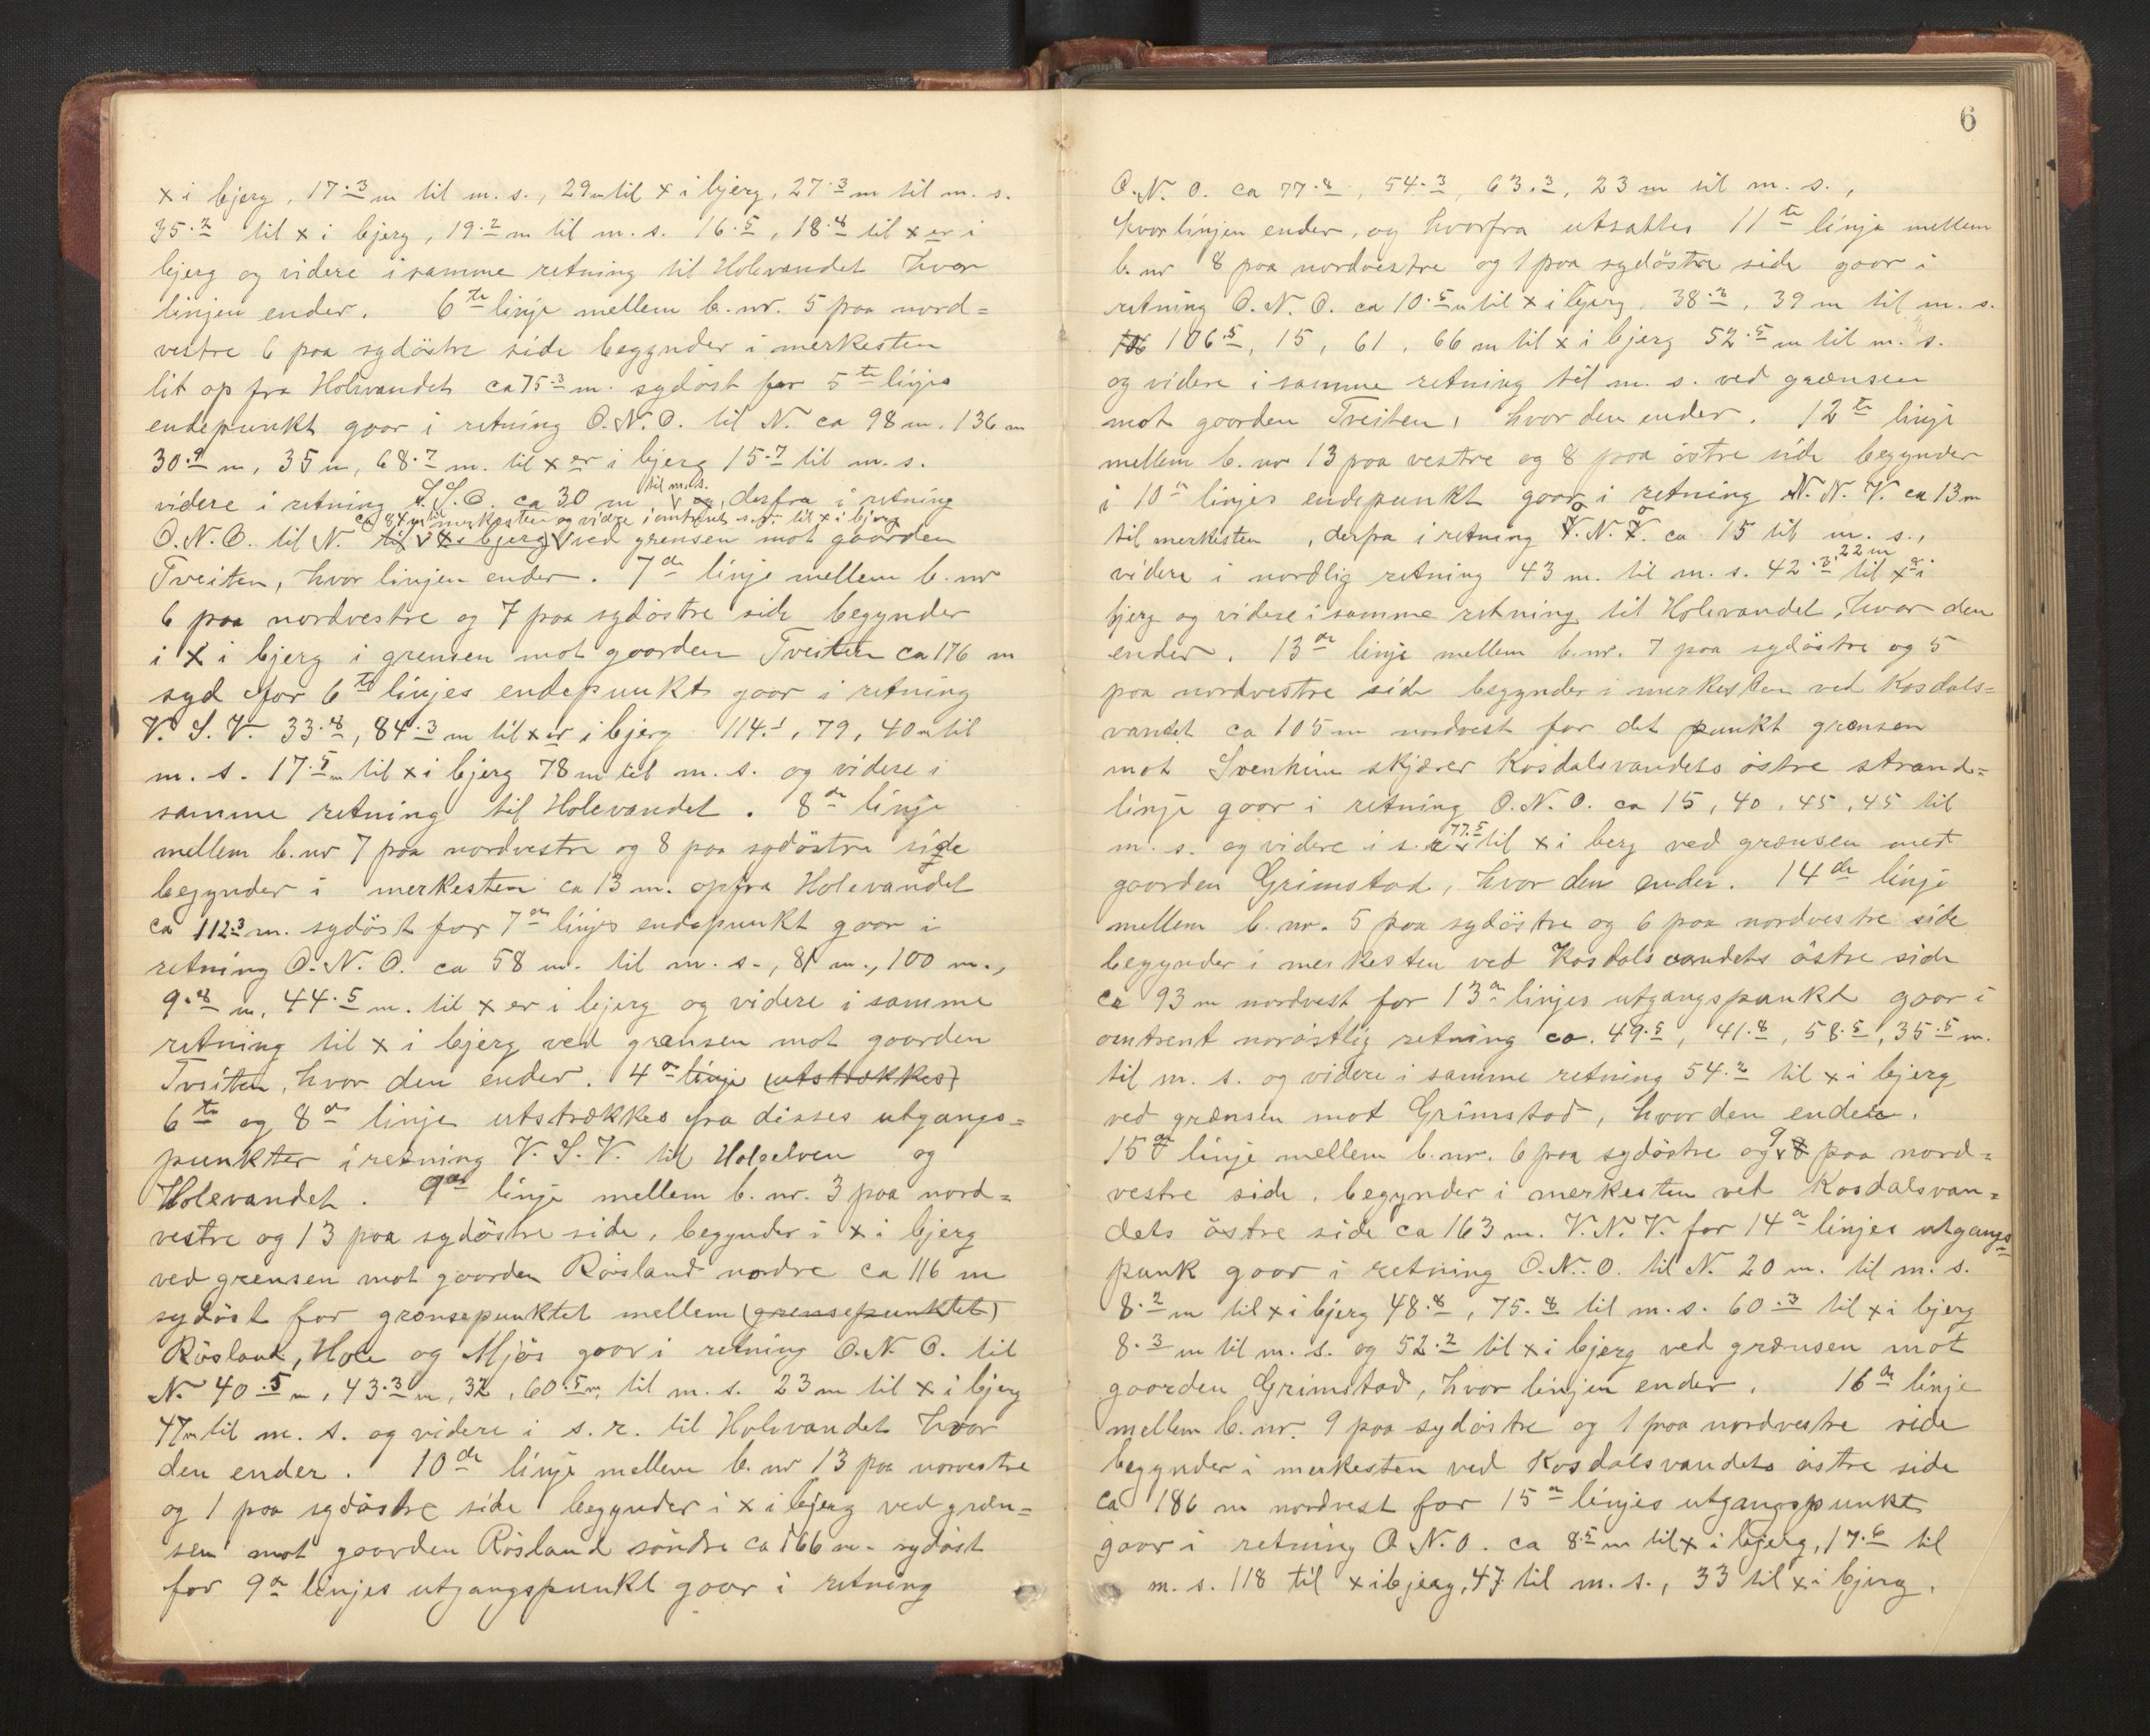 x i bjerg, 17.3 m til m. s., 29 m til x i bjerg, 27.3 m til m. s.
35.2 til x i bjerg, 19.2 m til m. s. 16.5, 18.8 til x er i
bjerg og videre i samme retning til Holevandet hvor
linjen ender. 6te linje mellem b. nr. 5 paa nord=
vestre 6 paa sydöstre side begynder i merkesten
lit op fra Holevandet ca 75.3 m. sydöst for 5te linjes
endepunkt gaar i retning O.N.O. til N. ca 98 m. 136 m
30.9 m, 35 m, 68.7 m. til x er i bjerg 15.7 til m. s.
videre i retning S.S.O. ca 30 m til m.s. derfra i retning
ca 84 m til merkesten og videre i omtrent s.r. til x i bjerg
O.N.O. til N. til x i bjerg ved grensen mot gaarden
Tveiten, hvor linjen ender. 7de linje mellem b. nr
6 paa nordvestre og 7 paa sydöstre side begynder
i x i bjerg i grensen mot gaarden Tveiten ca 176 m
syd for 6te linjes endepunkt gaar i retning
V. S. V. 33.8, 84.3 m til x er i bjerg 114.1, 79, 40 m til
m. s. 17.5 m til x i bjerg 78 m til m. s. og videre i
samme retning til Holevandet. 8de linje
mellem b. nr 7 paa nordvestre og 8 paa sydöstre side
begynder i merkesten ca 13 m. op fra Holevandet
ca 112.3 m. sydöst for 7de linjes endepunkt gaar i
retning O.N.O. ca 58 m. til m. s., 81 m., 100 m.,
9.8 m, 44.5 m. til x er i bjerg og videre i samme
retning til x i bjerg ved grænsen mot gaarden
Tveiten, hvor den ender. 4de linje (utstrækkes)
6te og 8de linje utstrækkes fra disses utgangs=
punkter i retning V. S. V. til Holeelven og
Holevandet. 9de linje mellem b. nr. 3 paa nord=
vestre og 13 paa sydöstre side, begynder i x i bjerg
ved grensen mot gaarden Rösland nordre ca 116 m
sydöst for grænsepunktet mellem (grensepunktet)
Rösland, Hole og Mjös gaar i retning O.N.O. til
N. 40.5 m, 43.3 m, 32, 60.5 m, til m. s. 23 m til x i bjerg
47 m til m. s. og videre i s. r. til Holevandet hvor
den ender. 10de linje mellem b. nr 13 paa norvestre
og 1 paa sydöstre side begynder i x i bjerg ved græn=
sen mot gaarden Rösland söndre ca 166 m. sydöst
for 9de linjes utgangspunkt gaar i retning
6
O.N.O. ca 77.8, 54.3, 63.3, 23 m til m. s.,
hvor linjen ender, og hvorfra utsattes 11te linje mellem
b. nr 8 paa nordvestre og 1 paa sydöstre side gaar i
retning O.N.O. ca 10.5 m til x i bjerg, 38.3, 39 m til m. s.
106 106.5, 15, 61, 66 m til x i bjerg 52.5 m til m. s.
og videre i samme retning til m. s. ved grænsen
mot gaarden Tveiten, hvor den ender. 12te linje
mellem b. nr 13 paa vestre og 8 paa östre side begynder
i 10de linjes endepunkt gaar i retning N.N.V. ca 13 m
til merkesten, derfra i retning O.N.O. ca 15 til m. s.,
videre i nordlig retning 43 m. til m. s. 42.3, 22 m til x er i
bjerg og videre i samme retning til Holevandet, hvor den
ender. 13de linje mellem b. nr. 7 paa sydöstre og 5
paa nordvestre side begynder i merkesten ved Kosdals=
vandet ca 105 m nordvest for det punkt grænsen
mot Svenheim skjærer Kosdalsvandets östre strand=
linje gaar i retning O.N.O. ca 15, 40, 45, 45 til
m. s. og videre i s. r. 77.5 til x i berg ved grænsen met
gaarden Grimstad, hvor den ender. 14de linje
mellem b. nr. 5 paa sydöstre og 6 paa nordvestre side
begynder i merkesten ved Kosdalsvandets östre side
ca 93 m nordvest for 13de linjes utgangspunkt gaar i
omtrent noröstlig retning ca. 49.5, 41.8, 58.5, 35.5 m.
til m. s. og videre i samme retning 54.2 til x i bjerg
ved grænsen mot Grimstad, hvor den ender.
15de linje mellem b. nr. 6 paa sydöstre og 9 paa nord=
vestre side, begynder i merkesten ved Kosdalsvan=
dets östre side ca 163 m. V.N.V. for 14de linjes utgangs=
punk gaar i retning O.N.O. til N. 20 m. til m. s.
8.2 m til x i bjerg 48.8, 75.8 til m. s. 60.3 til x i bjerg
8.3 m til m. s. og 52.2 til x i bjerg ved grænsen mot
gaarden Grimstad, hvor linjen ender. 16de linje
mellem b. nr. 9 paa sydöstre og 1 paa nordvestre side
begynder i merkesten ved Kosdalsvandets östre side
ca 186 m nordvest for 15de linjes utgangspunkt
gaar i retning O.N.O. ca 8.5 m til x i bjerg, 17.6 til
m. s. 118 til x i bjerg, 47 til m. s., 33 til x i bjerg,